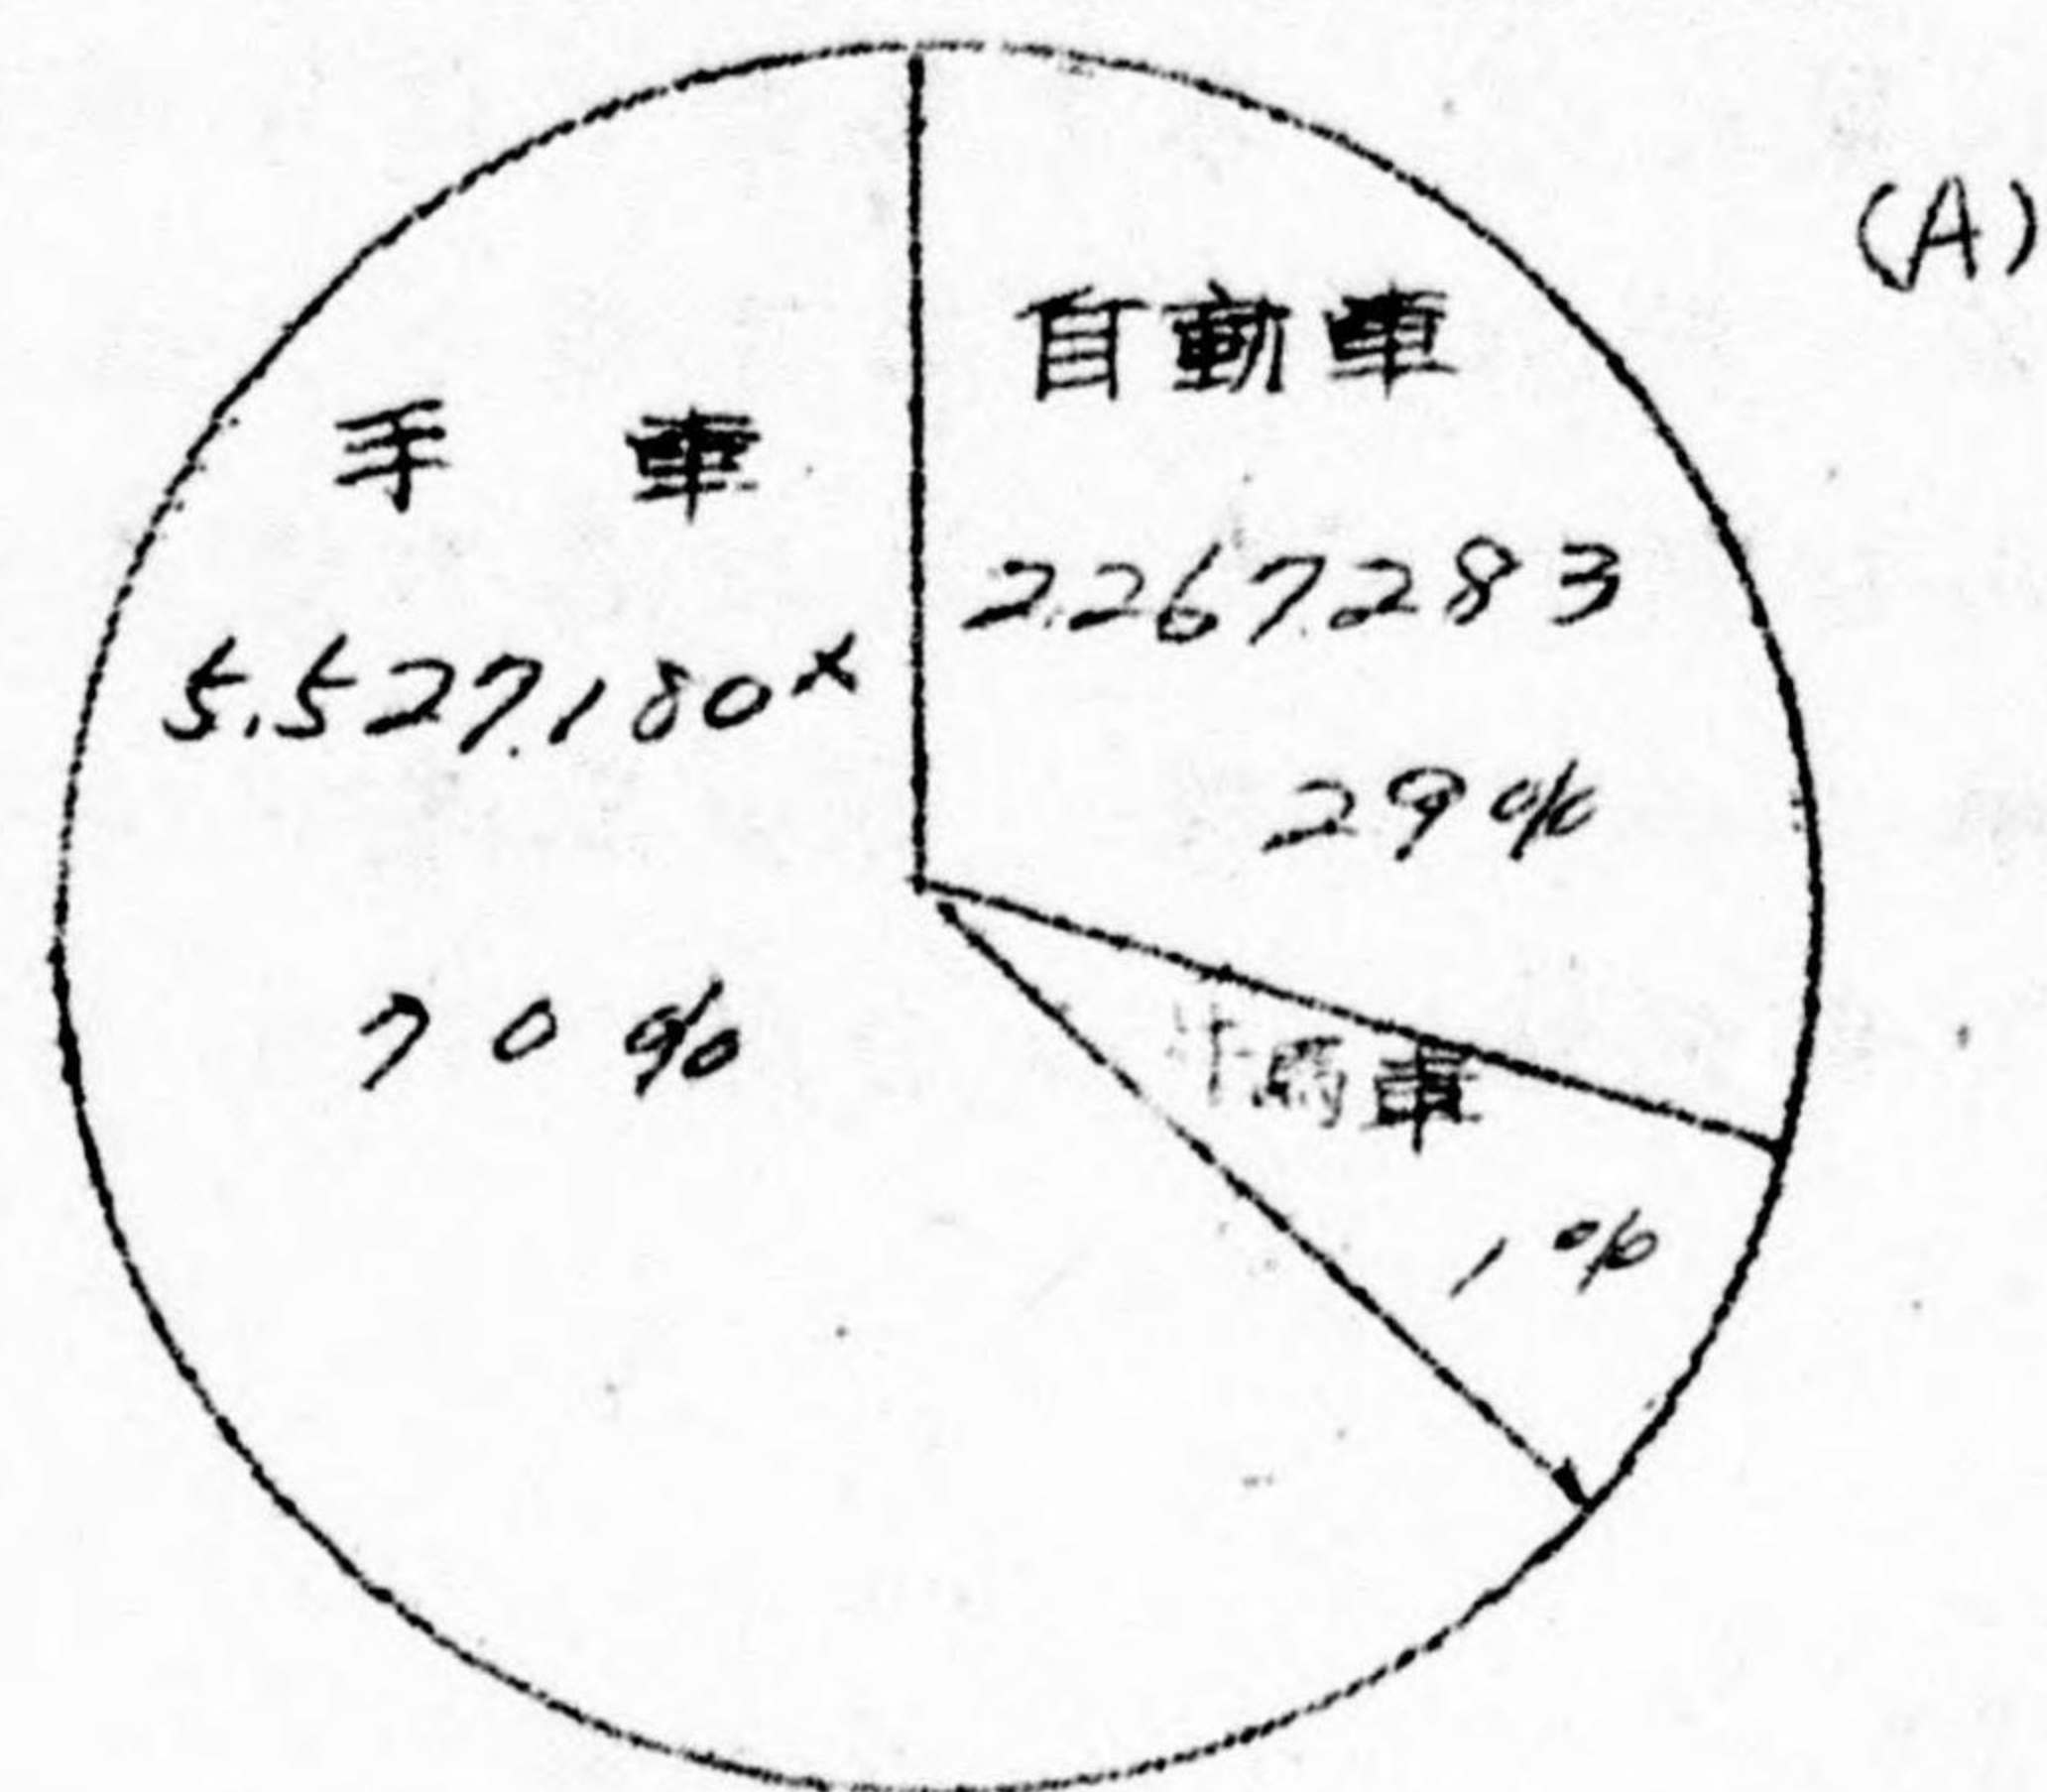 (A)
自動車
2.267.283
29%
手車
5.527.180
70%
牛馬車
1%